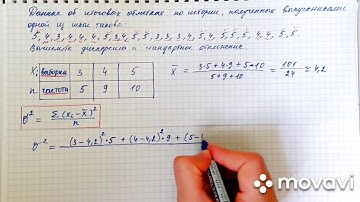 Данные об итоговых отметках по истории, полученных выпускниками
одной из школ таковы:
3, 4, 3, 4, 4, 4, 5, 3, 4, 5, 5, 3, 3, 3, 4, 5, 4, 5, 5, 5, 4, 4, 5, 5.
Вычислите дисперсию и стандартное отклонение.
Xi выборки 3 4 5
n частоты 5 9 10
x̄ = (3·5 + 4·9 + 5·10) / (5+9+10) = 101/24 ≈ 4,2
σ² = Σ(xi − x̄)² / n
σ² = (3−4,2)²·5 + (4−4,2)²·9 + (5−
movavi